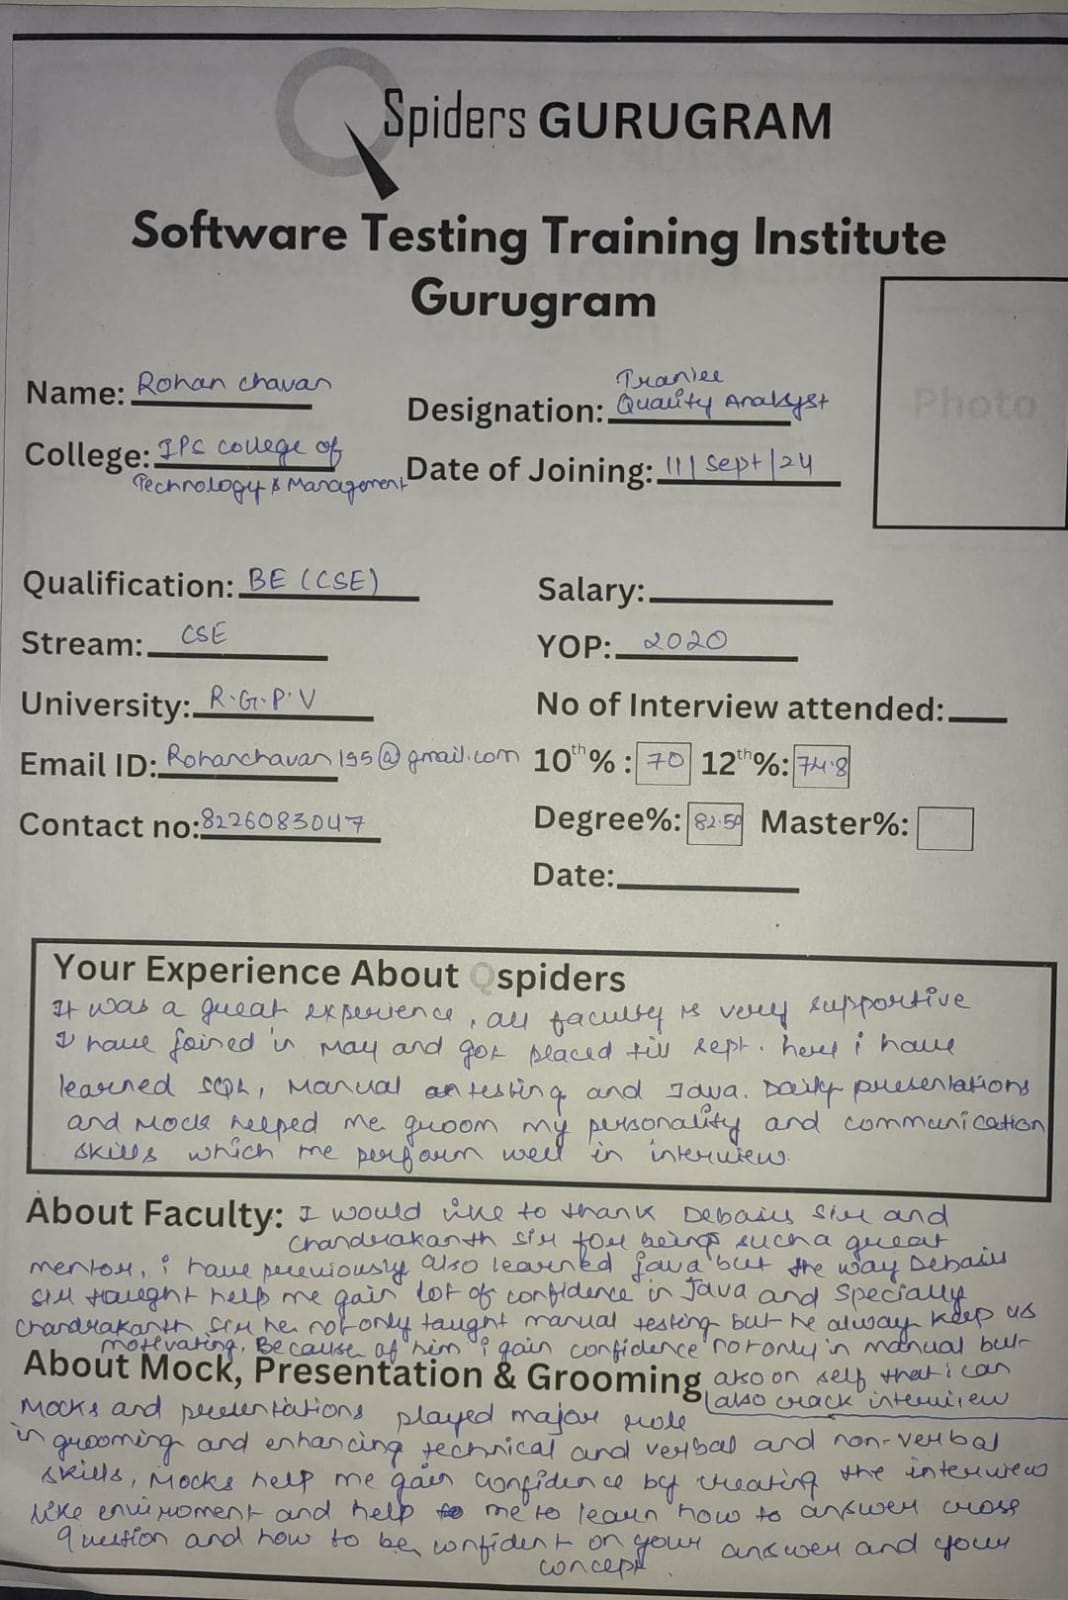 QSpiders GURUGRAM
Software Testing Training Institute
Gurugram
Photo
Name: Rohan chavan
Designation: Traniee
Quality Analyst
College: IPS college of
Technology & Management
Date of Joining: 11 | Sept | 24
Qualification: BE (CSE)
Salary:
Stream: CSE
YOP: 2020
University: R.G.P.V
No of Interview attended:
Email ID: Rohanchavan195@gmail.com
10th% : 70 12th%: 74.8
Contact no: 8226083047
Degree%: 82.50 Master%:
Date:
Your Experience About Qspiders
It was a great experience, all faculty is very supportive
I have joined in May and got placed till sept. here i have
learned SQL, Manual testing and Java. Daily presentations
and Mock helped me groom my personality and communication
skills which me perform well in interview
About Faculty: I would like to thank Debasis Sir and
Chandrakanth Sir for being such a great
mentor, i have previously also learned java but the way Debasis
sir taught help me gain lot of confidence in Java and Specially
Chandrakanth Sir he not only taught manual testing but he always keep us
motivating. Because of him i gain confidence not only in manual but
also on self that i can
also crack interview
About Mock, Presentation & Grooming
Mocks and presentations played major role
in grooming and enhancing technical and verbal and non-verbal
skills, Mocks help me gain confidence by creating the interview
like enviroment and help me to learn how to answer cross
question and how to be confident on your answer and your
concept.